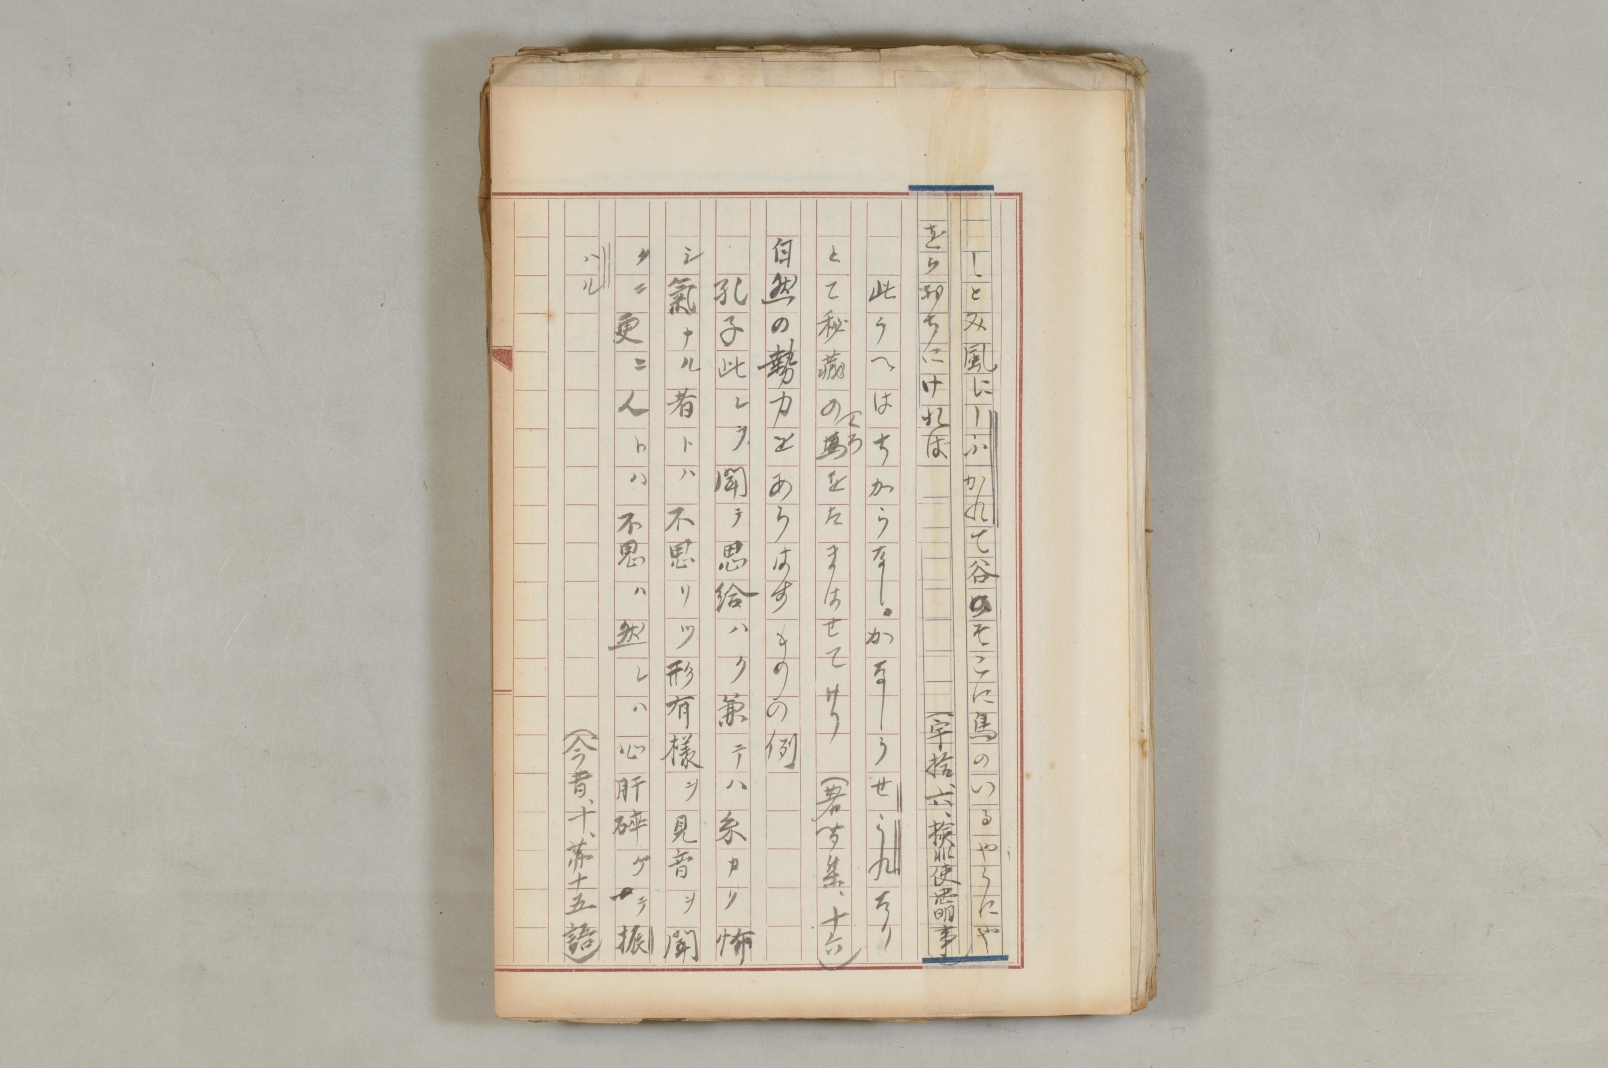 しとみ風にしふかれて谷のそこに鳥のいるやうにや
をらおちにけれは　（宇拾、六、検非使忠明事）
此うへはちからなし。かなしうせられたり
とて秘蔵の馬をたまはせてけり　（著聞集、十六）
自然の勢力をあらはすものの例
孔子此レヲ聞テ思給ハク兼テハ糸カク怖
シ氣ナル者トハ不思リツ形有様ヲ見音ヲ聞
クニ更ニ人トハ不思ハ然レハ心肝砕ケテ振
ハル
（今昔、十、第十五語）